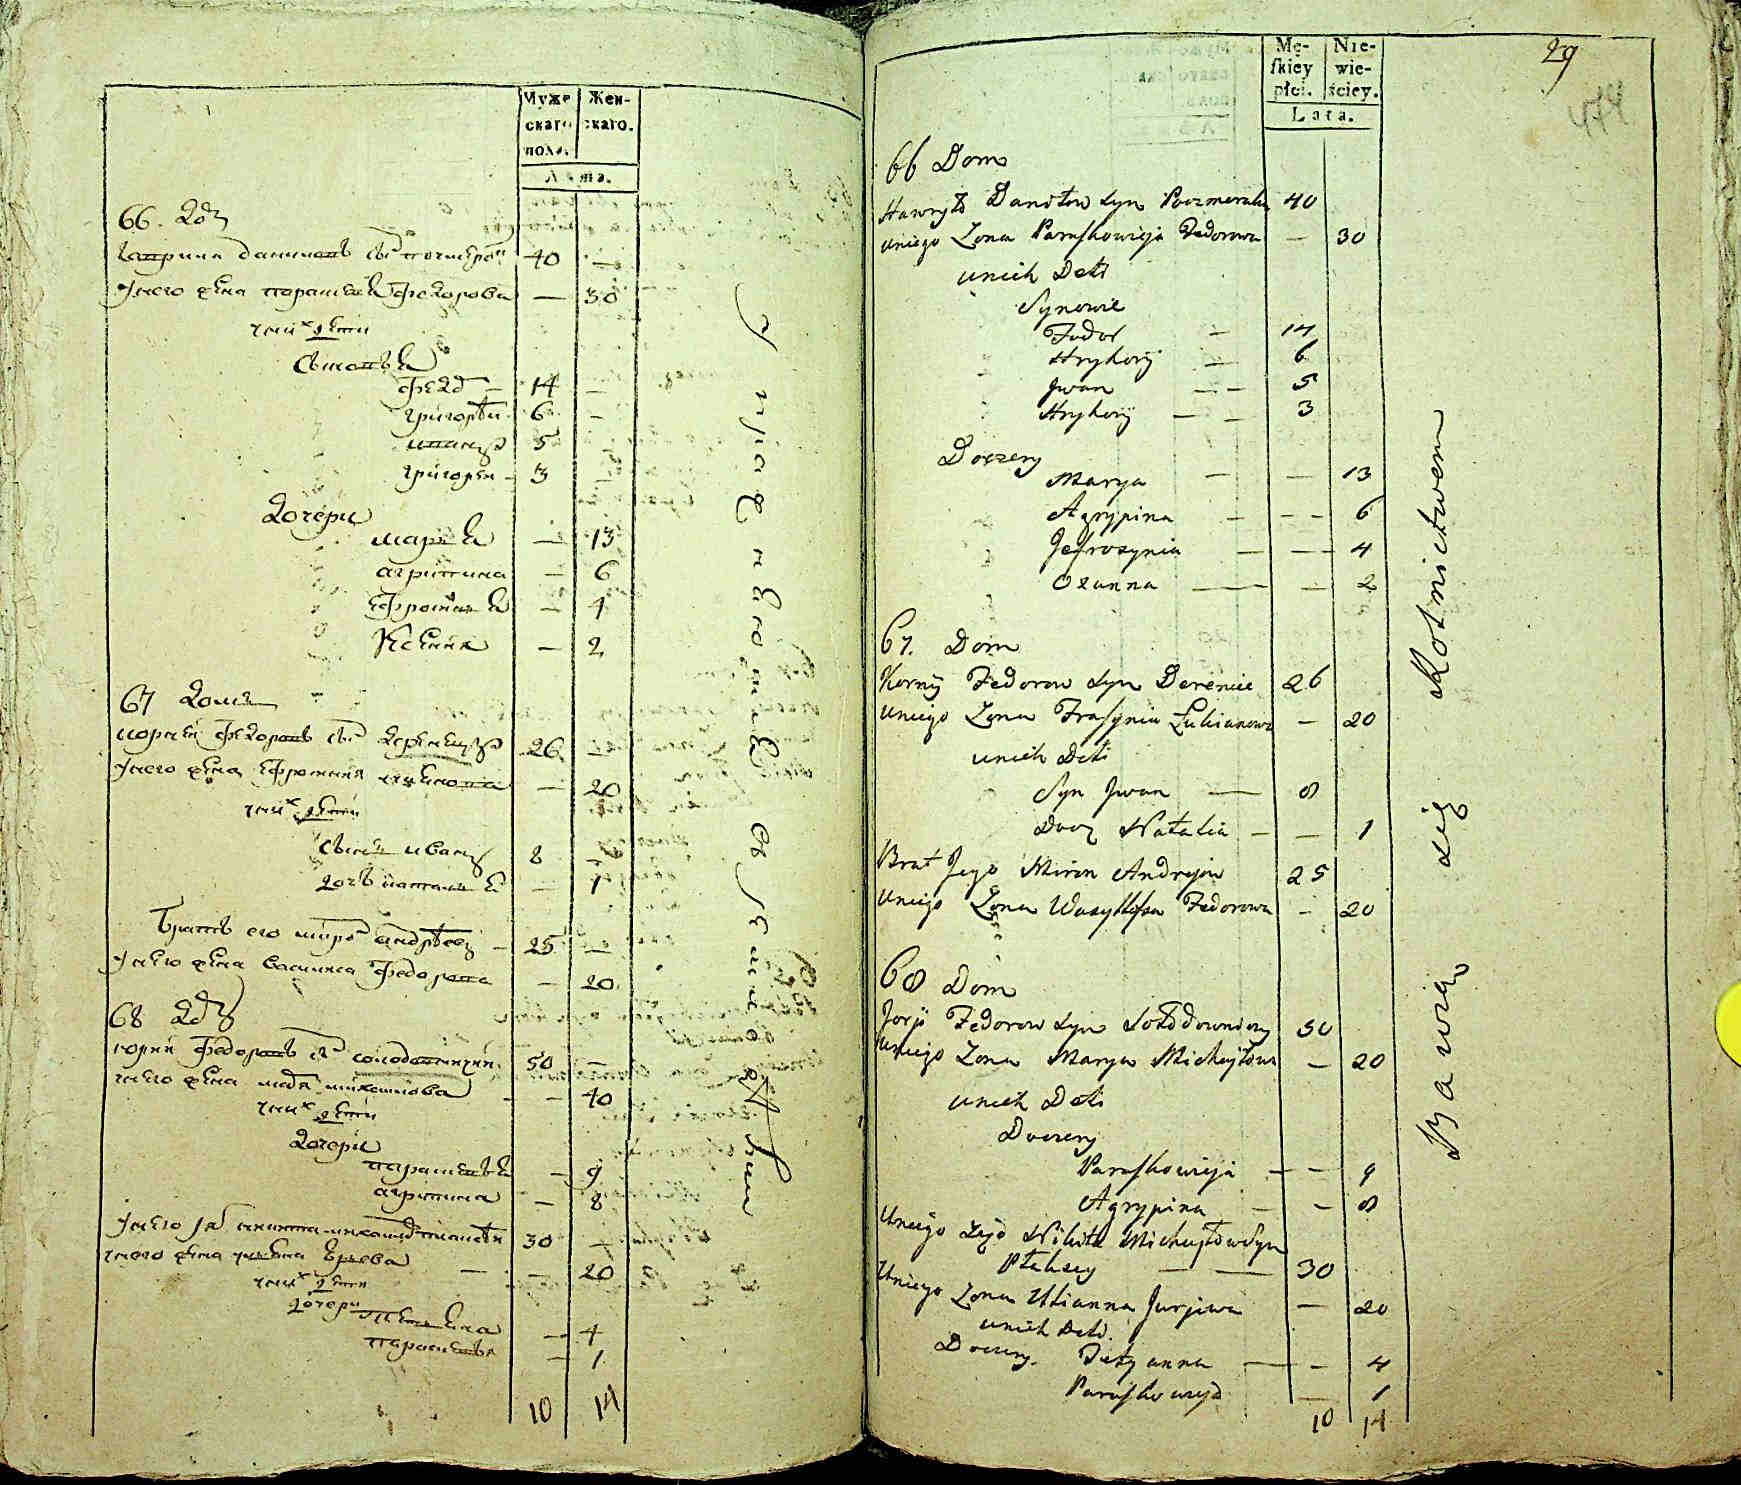 Муже скаго пола.
Жен- скаго.
Лѣта.
66. до
гаврила даниловъ сы
40 —
У него жена параскевия федорова — 30
у них дети
Сыновья
федо — 14 —
григорѣй 6 —
иванъ 5
григорей 3
дочери
марья — 13
агрипина — 6
ефросинья — 4
Ксения — 2
67 домъ
корнѣй федоровъ сы 26 —
У него жена ефросиния — 20
у них дети
сынъ иванъ 8 —
дочь наталья — 1
братъ его миро андрѣев 25 —
У него жена василиса федорова — 20
68 до
юрий федоровъ сы 50 —
у него жена михаилова — 40
у них дети
дочери
парасковья — 9
агрипина — 8
У него 30 —
у него жена — 20
у них дети
дочери
— 4
парасковья — 1
10 14
29
474
Mę- skiey płci.
Nie- wie- ściey.
Lata.
66 Dom
Hawryło Daniłow syn 40
uniego Zona Paraskowieja Fedorowa — 30
unich Deti
Synowie
Fedor — 14
Hryhory — 6
Jwan — — 5
Hryhory — — 3
Doczery
Marya — — 13
Agrypina — — — 6
Jefrosynia — — — 4
Oxanna — — 2
67. Dom
Korniy Fedorow syn Dereniec 26
uniego Zona Frasynia Łukianowa — 20
unich Deti
Syn Jwan — 8
Docz Natalia — — 1
Brat Jego Miron Andrejow 25
uniego Zona Wasyllisa Fedorowa — 20
68 Dom
Jorji Fedorow syn 50
uniego Zona Marya Michajłowa — 20
unich Deti
Doczery
Paraskowieja — — 9
Agrypina — — 8
Uniego Nikita Michajłow Syn
— — 30
Uniego Zona Ulianna Jurjewa — 20
unich Deti.
Doczery. Tetyanna — — 4
Paraskoweya — 1
10 14
Bawią się Rolnictwem